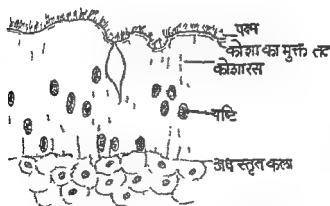 पक्ष्म
कोशा का मुक्त तट
कोशारस
यष्टि
अध स्तृत कला